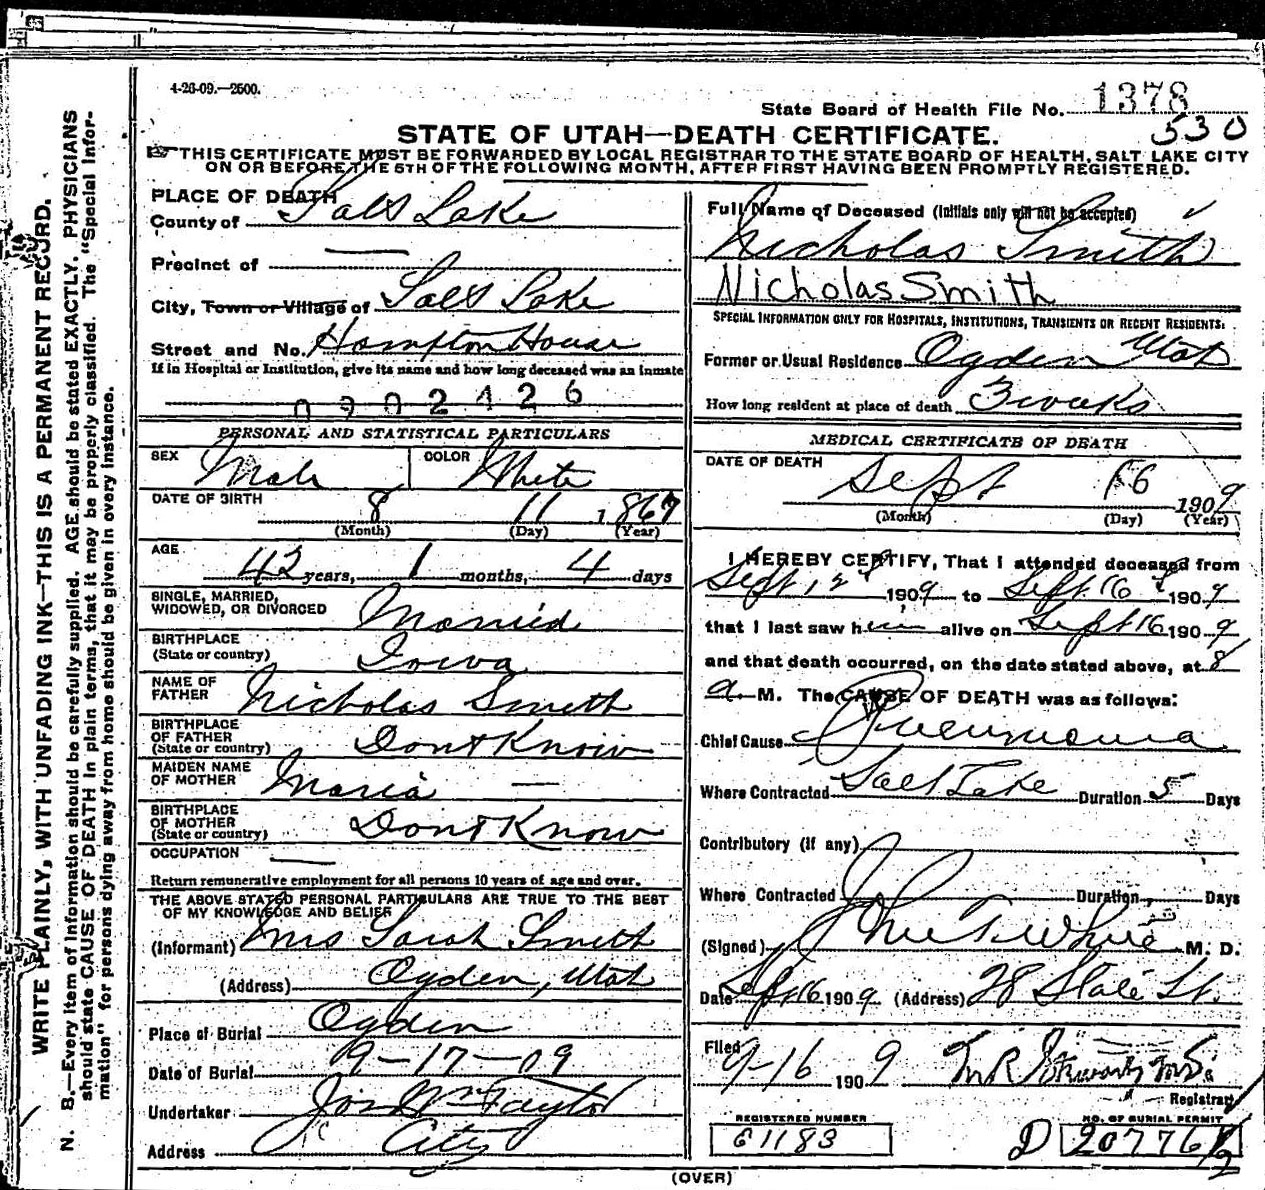 4-26-09.—2500.
State Board of Health File No. 1378
530
STATE OF UTAH—DEATH CERTIFICATE.
THIS CERTIFICATE MUST BE FORWARDED BY LOCAL REGISTRAR TO THE STATE BOARD OF HEALTH, SALT LAKE CITY
ON OR BEFORE THE 5TH OF THE FOLLOWING MONTH, AFTER FIRST HAVING BEEN PROMPTLY REGISTERED.
WRITE PLAINLY, WITH UNFADING INK—THIS IS A PERMANENT RECORD.
N. B.—Every item of information should be carefully supplied. AGE should be stated EXACTLY. PHYSICIANS
should state CAUSE OF DEATH in plain terms, that it may be properly classified. The "Special Infor-
mation" for persons dying away from home should be given in every instance.
PLACE OF DEATH
County of Salt Lake
Precinct of —
City, Town or Village of Salt Lake
Street and No. Hampton House
If in Hospital or Institution, give its name and how long deceased was an inmate
0902426
PERSONAL AND STATISTICAL PARTICULARS
SEX Male COLOR White
DATE OF BIRTH 8 11 1867
(Month) (Day) (Year)
AGE 42 years, 1 months, 4 days
SINGLE, MARRIED,
WIDOWED, OR DIVORCED Married
BIRTHPLACE
(State or country) Iowa
NAME OF
FATHER Nicholas Smith
BIRTHPLACE
OF FATHER
(State or country) Dont Know
MAIDEN NAME
OF MOTHER Maria —
BIRTHPLACE
OF MOTHER
(State or country) Dont Know
OCCUPATION —
Return remunerative employment for all persons 10 years of age and over.
THE ABOVE STATED PERSONAL PARTICULARS ARE TRUE TO THE BEST
OF MY KNOWLEDGE AND BELIEF
(Informant) Mrs Sarah Smith
(Address) Ogden, Utah
Place of Burial Ogden
Date of Burial 9-17-09
Undertaker Jos Wm Taylor
Address City
Full Name of Deceased (Initials only will not be accepted)
Nicholas Smith
Nicholas Smith
SPECIAL INFORMATION ONLY FOR HOSPITALS, INSTITUTIONS, TRANSIENTS OR RECENT RESIDENTS:
Former or Usual Residence Ogden Utah
How long resident at place of death 3 weeks
MEDICAL CERTIFICATE OF DEATH
DATE OF DEATH
Sept 16 1909
(Month) (Day) (Year)
I HEREBY CERTIFY, That I attended deceased from
Sept. 12 1909 to Sept. 16 1909
that I last saw him alive on Sept 16 1909
and that death occurred, on the date stated above, at 8
a. M. The CAUSE OF DEATH was as follows:
Chief Cause Pneumonia
Where Contracted Salt Lake Duration 5 Days
Contributory (if any)
Where Contracted Duration Days
(Signed) John T. White M. D.
Date Sept 16 1909 (Address) 28 State St.
Filed 9-16 1909 M.D.
Registrar
REGISTERED NUMBER
61183
NO. OF BURIAL PERMIT
D 20776 1/2
(OVER)